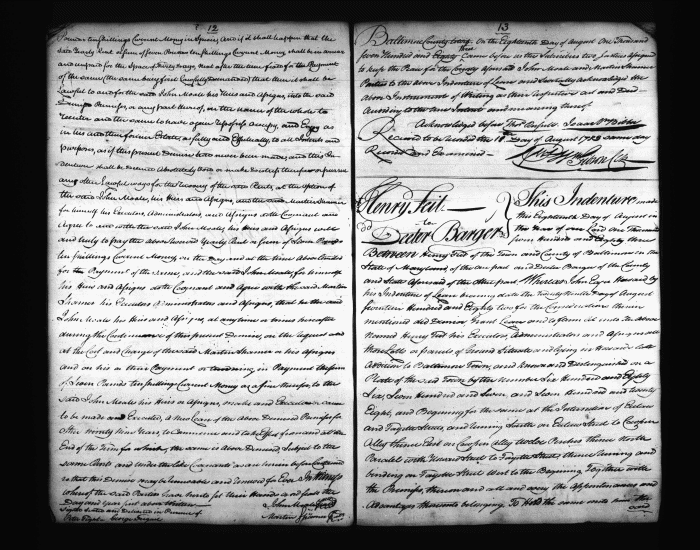 12
Pounds ten Shillings Current Money in Specie, And if it shall happen that the
said Yearly Rent or Sum of Seven Pounds ten Shillings Current Money shall be in arrear
and unpaid for the Space of thirty days, that after the time fixed for the Payment
of the same (the same being first Lawfully demanded) that then it shall be
Lawful to and for the said John Moale his Heirs and Assigns, into the said
Demised Premises, or any part thereof, in the name of the whole to
reenter and the same to have again Repossess Occupy, and Enjoy as
in his and their former Estate, as fully and Effectually, to all Intents and
purposes, as if this present Demise had never been made; and this In-
denture shall be deemed Absolutely Void or make Use of
any other Lawful ways for the recovery of the said Rents, at the option of
the said John Moale, his Heirs and Assigns, and the said Martin Shammo
for himself his Executors, Administrators, and Assigns doth Covenant and
Agree to and with the said John Moale, his Heirs and Assigns well
and truly to pay the above Reserved Yearly Rent or Sum of Seven Pounds
ten Shillings Current Money on the Day and at the time above limited
for the Payment of the same, and the said John Moale, for himself
his Heirs and Assigns doth Covenant and Agree with the said Martin
Shammo his Executors Administrators and Assigns, that he the said
John Moale his Heirs and Assigns, at any time or times hereafter
during the Continuance of this present Demise, on the request and
at the Cost and Charges of the said Martin Shammo or his Assigns
and on his or their Payment or tendering in Payment the Sum
of Seven Pounds ten Shillings Current Money as a fine therefor, to the
said John Moale his Heirs or Assigns, make and Execute or cause
to be made and Executed, a New Lease of the Above Demised Premises for
other Ninety Nine Years, to Commence and take Effect from and at the
End of the Term for which the same is Above Demised, Subject to the
same Rents and Under the like Covenants as are herein before Contained
so that this Demise may be renewable and renewed for Ever In Witness
whereof the said Parties have hereto set their Hands and seals the
Day and Year first above written
Signed Sealed and Delivered in Presence of
George
John Moale
Martin
13
Baltimore County to wit. On the Eighteenth Day of August One thousand
Seven Hundred and Eighty three Came before us the Subscribers two Justices Assigned
to keep the Peace for the County aforesaid John Moale and Martin Shammo
Parties to the above Indenture of Lease and Severally Acknowledged the
above Instrument of Writing as their respective act and Deed
According to the true Intent and meaning thereof.
Acknowledged before
Received to be Recorded the 18th Day of August 1783 same day
Recorded and Examined
Henry Feit
to
Deeter Barger
This Indenture made
this Eighteenth Day of August in
the Year of our Lord One thousand
Seven Hundred and Eighty three
Between Henry Feit of the Town and County of Baltimore in the
State of Maryland of the one part and Deeter Barger of the County
and State Aforesaid of the other part Whereas John Eager Howard by
his Indenture of Lease bearing date the Day of August
Seventeen Hundred and Eighty two for the Consideration therein
mentioned did Demise Grant Lease and to Farm let unto the Above
Named Henry Feit his Executors, Administrators and Assigns all
those Lotts or parcels of Ground Situate and lying in Howards late
Addition to Baltimore Town, and known and Distinguished on a
Platt of the said Town by the Number Six Hundred and Eighty
Six, Seven Hundred and Seven, and Seven Hundred and twenty
Eight, and Beginning for the same at the Intersection of Eutaw
and Fayette Streets, and running South on Eutaw Street to Cowpen
Alley thence East on Cowpen Alley twelve Perches thence North
Paralel with Eutaw Street to Fayette Street thence running and
binding on Fayette Street West to the Beginning Together with
the Premises, thereon and all and every the Appurtenances and
Advantages thereunto belonging To Hold the same unto him the
said